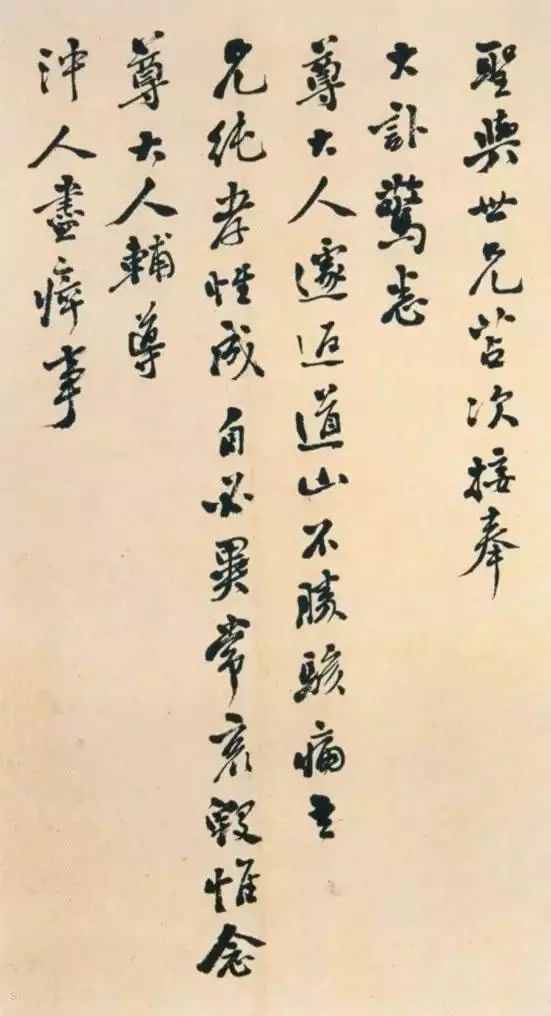 聖與世兄苫次接奉
大訃驚悉
尊大人遽返道山不勝駭痛立
兄純孝性成自必異常哀毀惟念
尊大人輔導
沖人盡瘁事